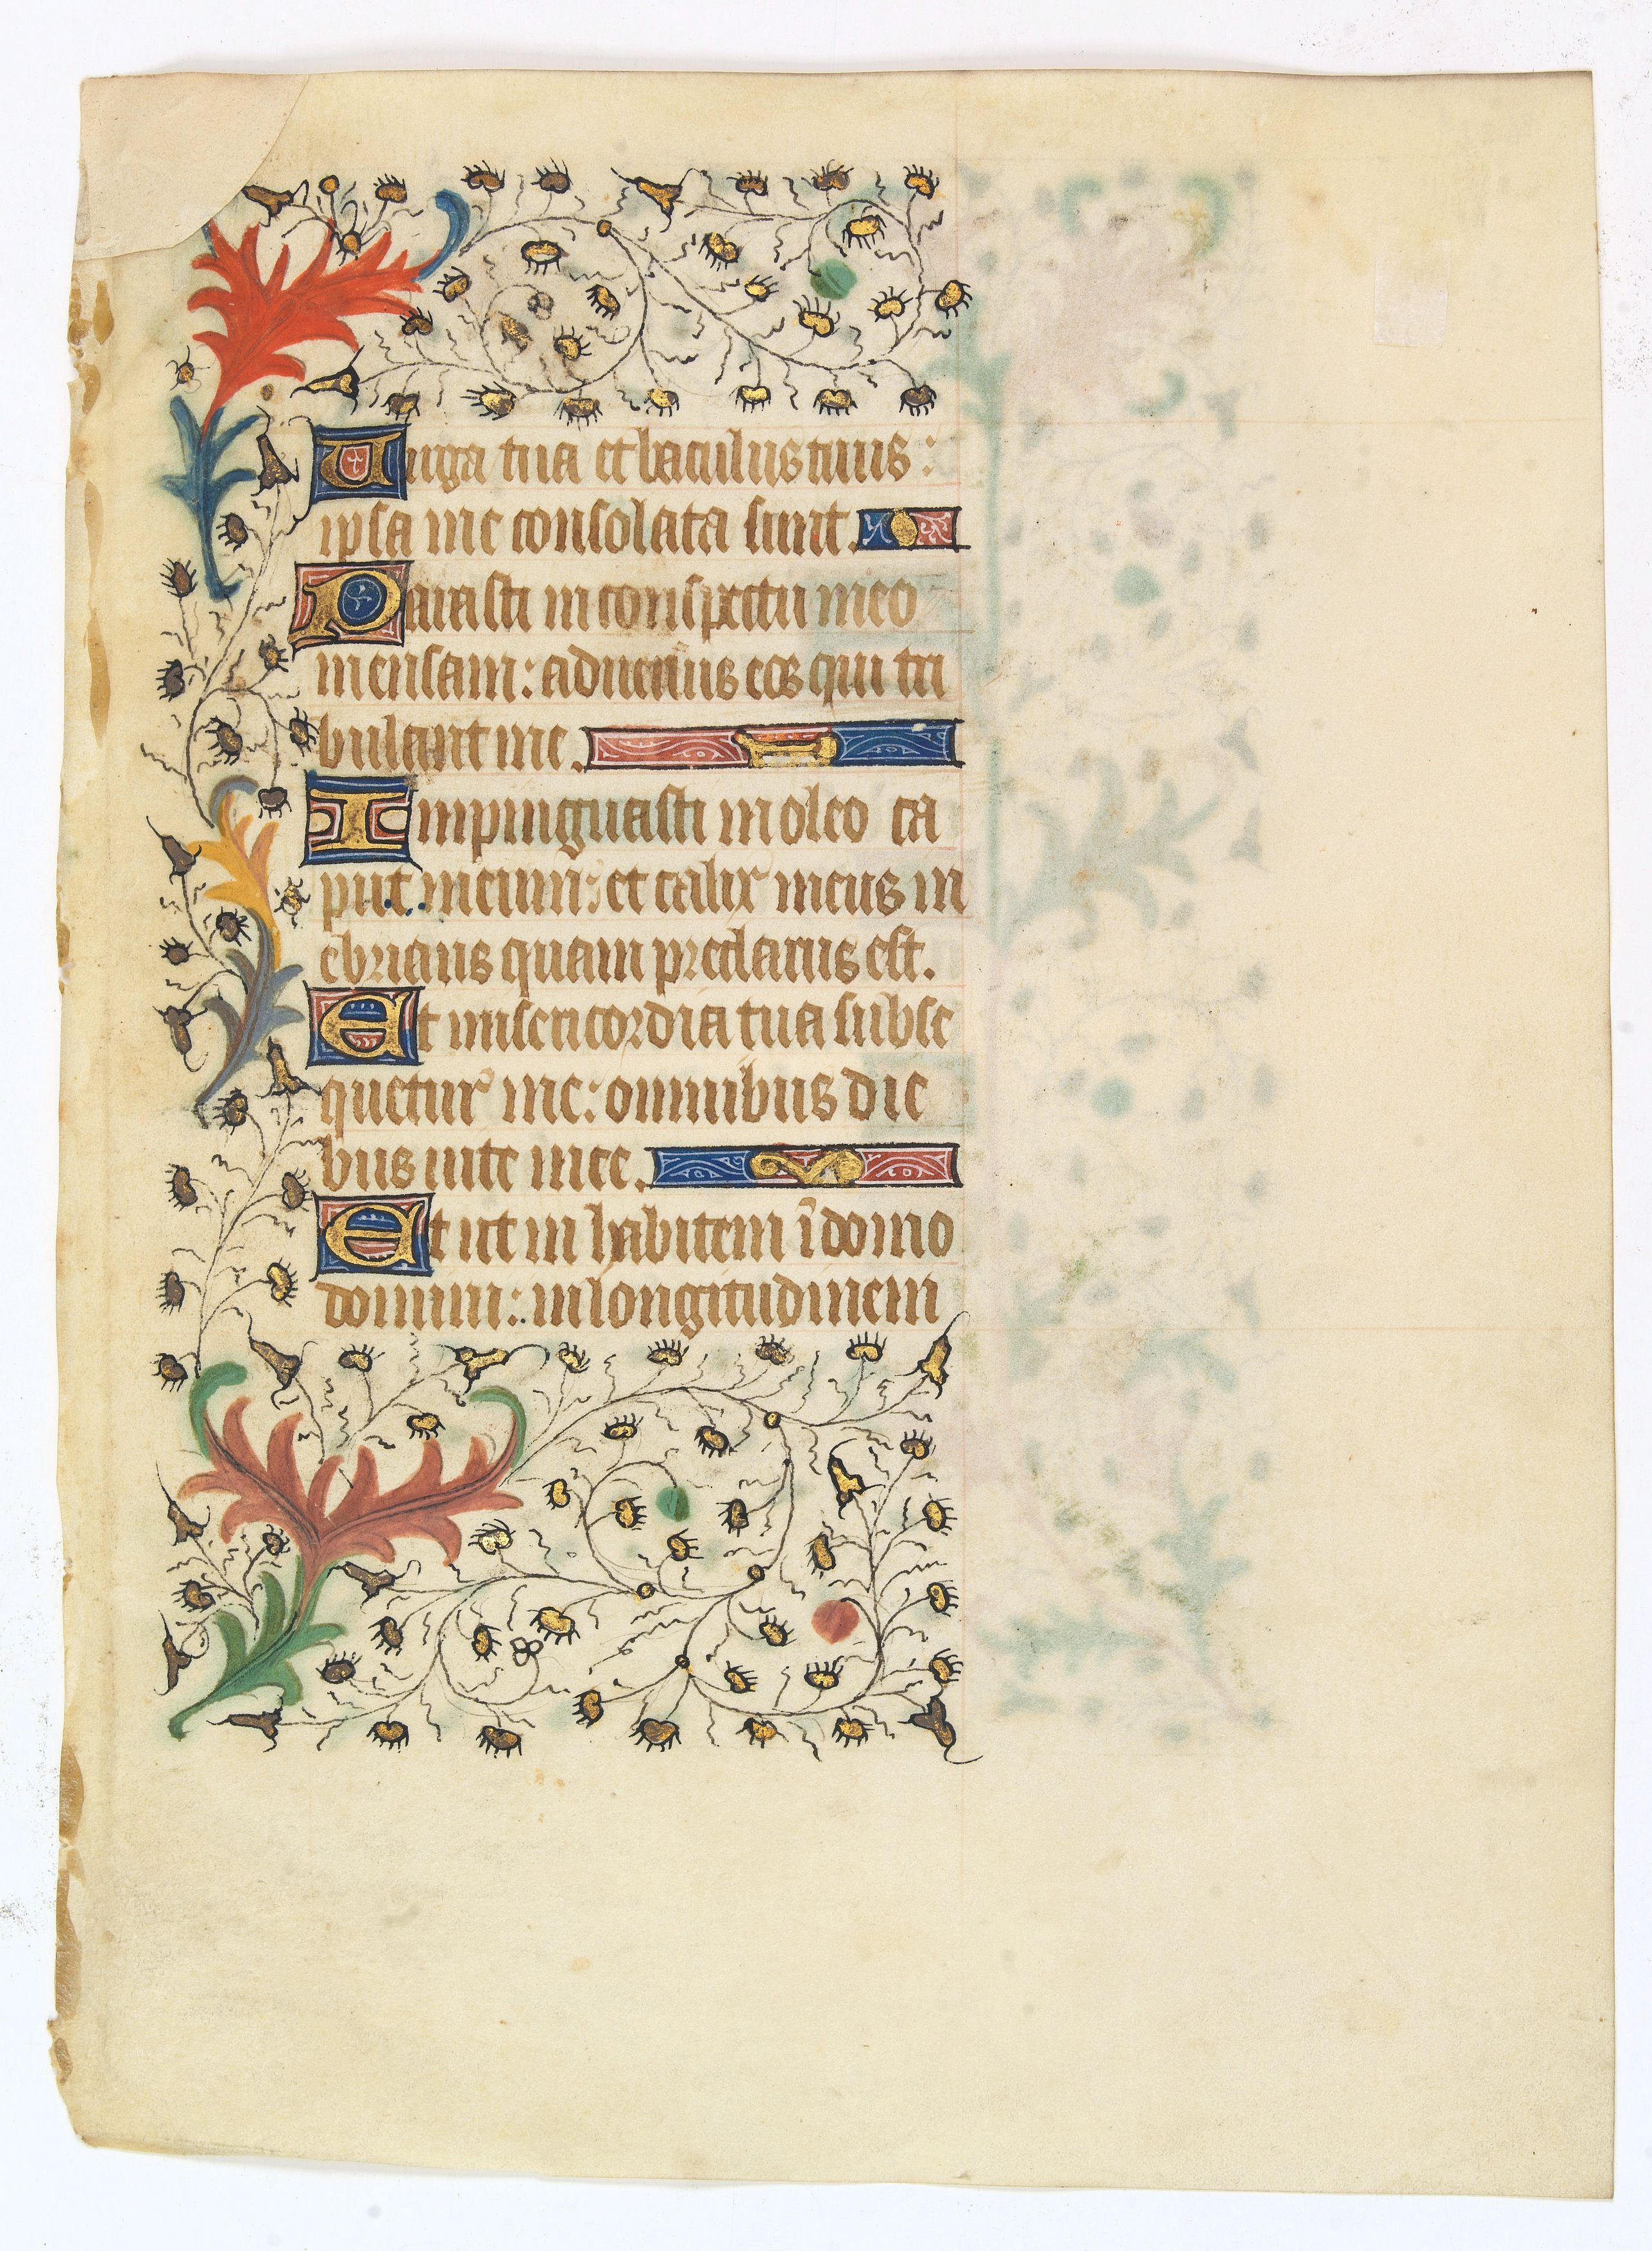 Uirga tua et baculus tuus:
ipsa me consolata sunt.
Parasti in conspectu meo
mensam: aduersus eos qui tri
bulant me.
Impinguasti in oleo ca
put meum: et calix meus in
ebrians quam preclarus est.
Et misericordia tua subse
quetur me: omnibus die
bus uite mee.
Et ut in habitem ī domo
domini: in longitudinem